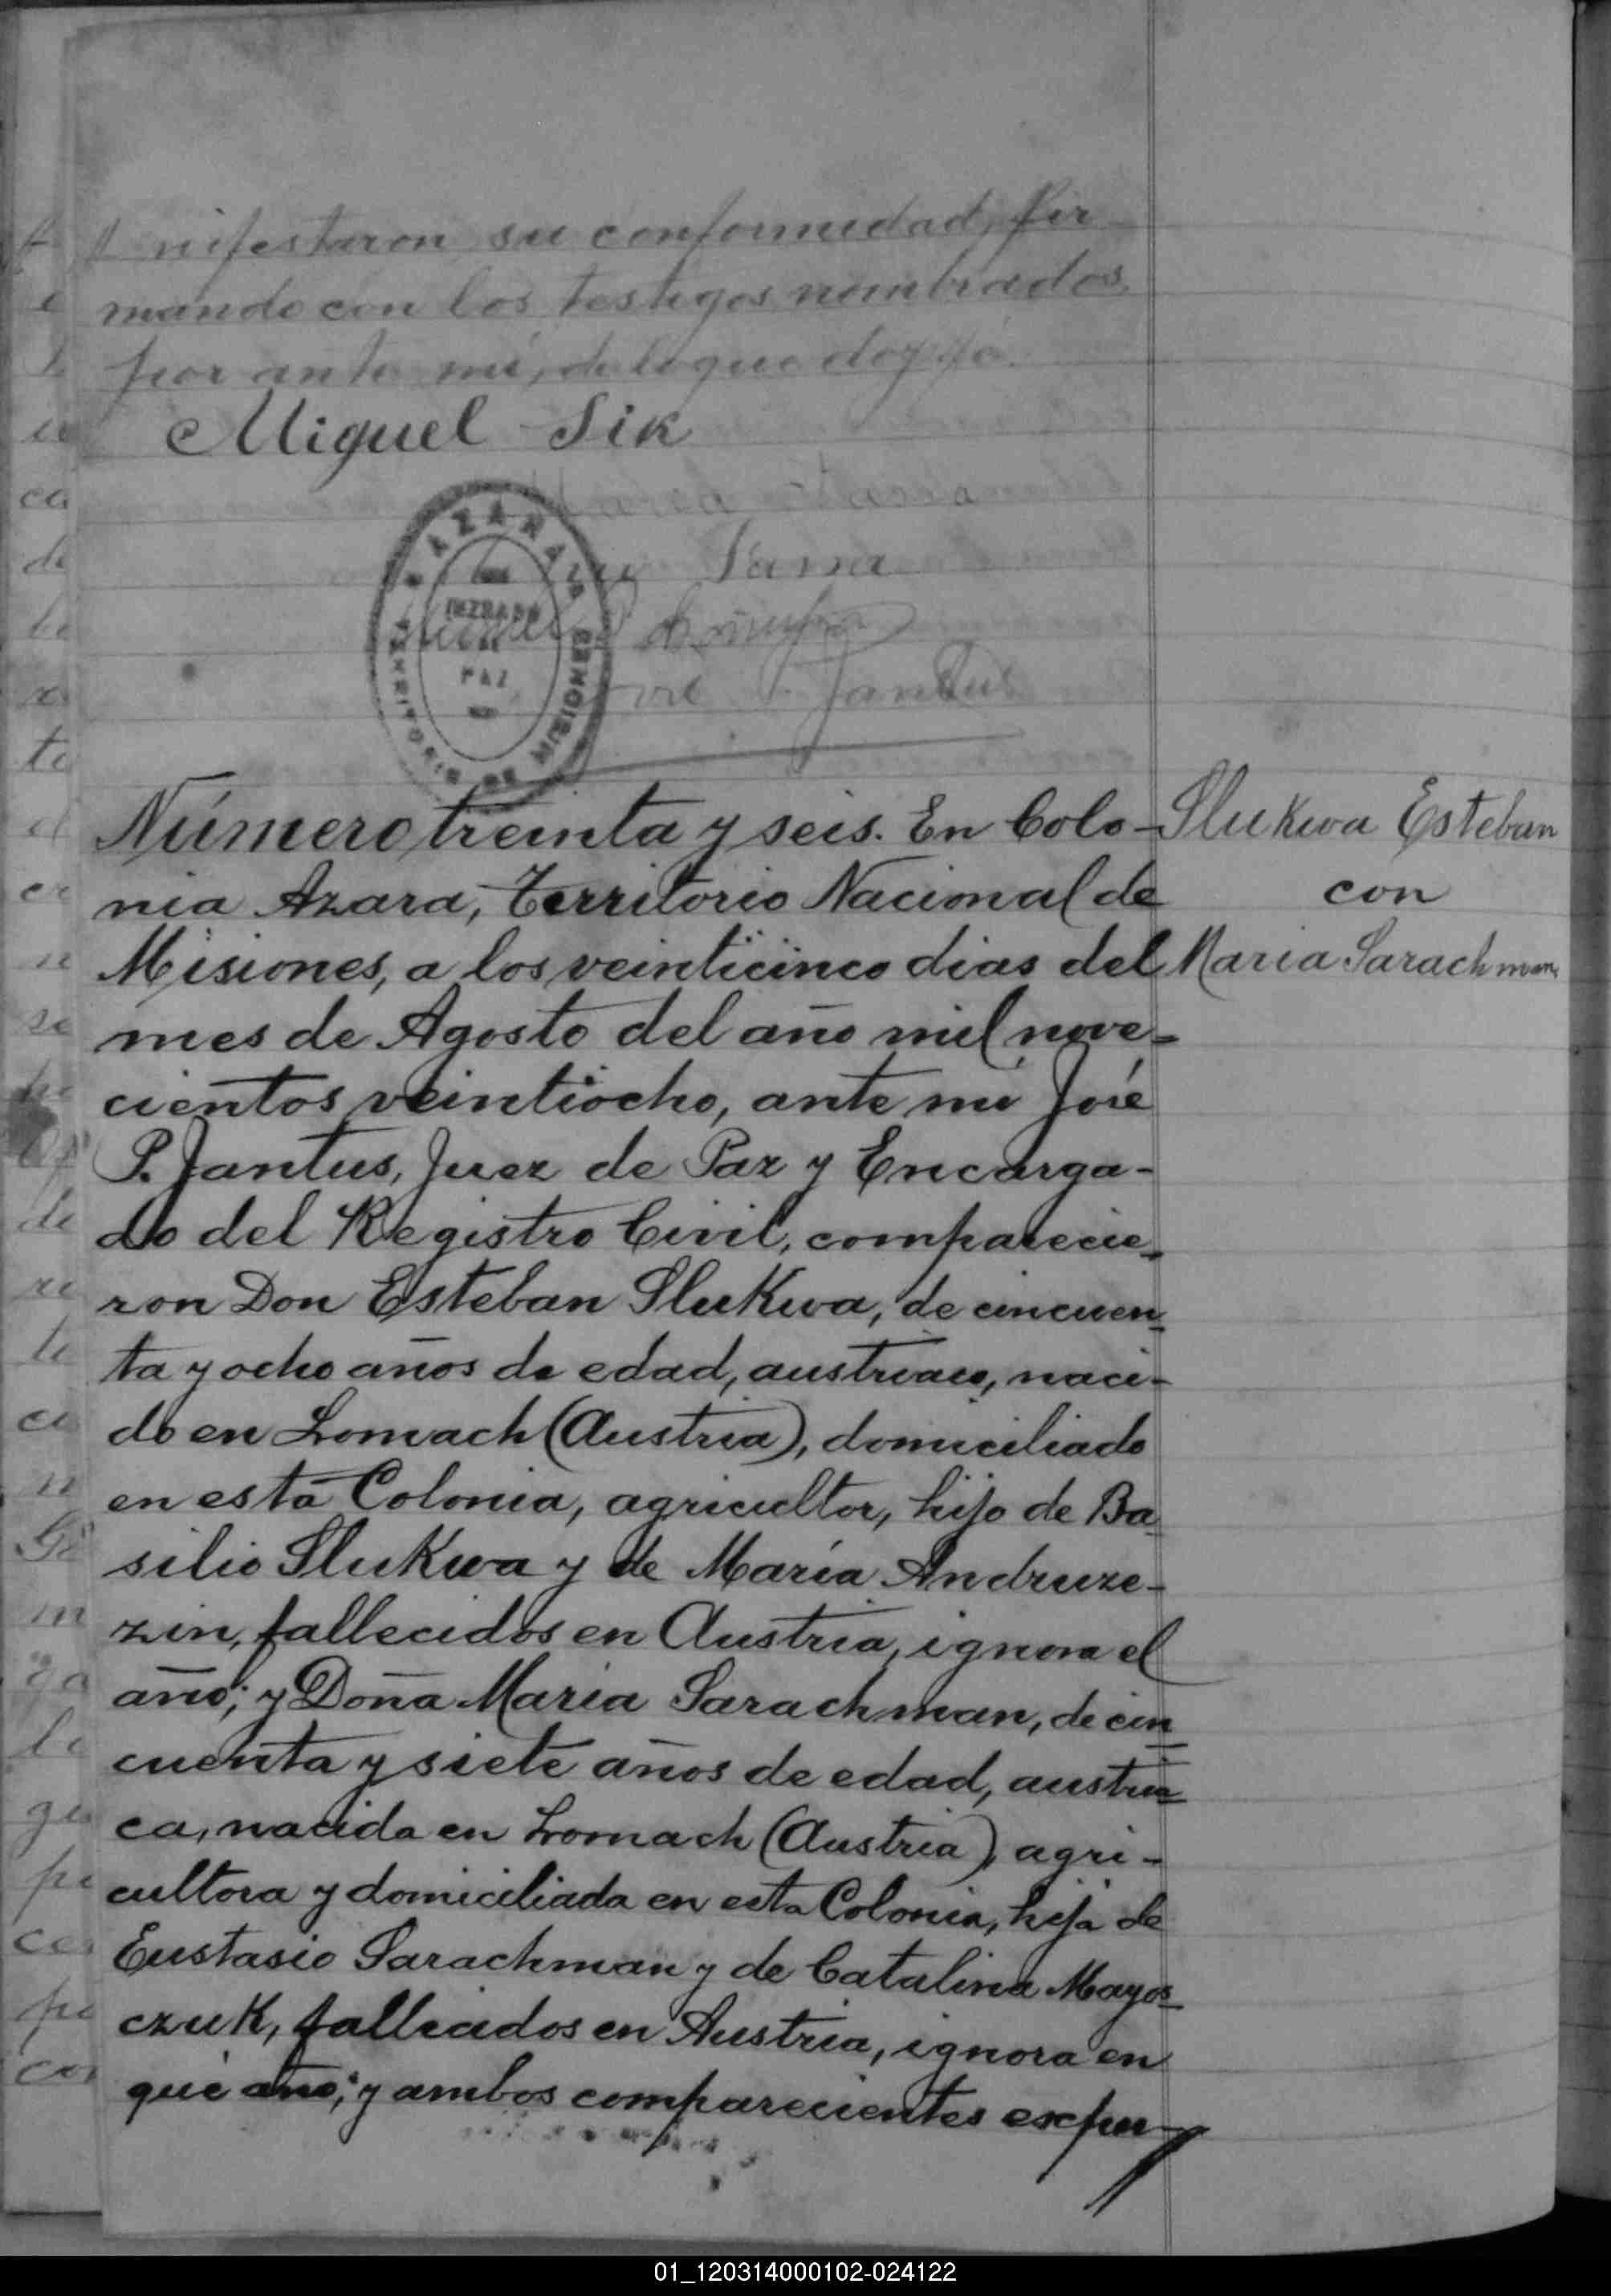 nifestaron su conformidad, fir-
mando con los testigos nombrados,
por ante mí, de lo que doy fé.
Miguel Sik
María
AZARA
JUZGADO
DE
PAZ
TERRITORIO DE MISIONES
P. Jantus
Número treinta y seis. En Colo-
nia Azara, Territorio Nacional de
Misiones, a los veinticinco dias del
mes de Agosto del año mil nove-
cientos veintiocho, ante mi José
P. Jantus, Juez de Paz y Encarga-
do del Registro Civil, comparecie-
ron Don Esteban Slukwa, de cincuen-
ta y ocho años de edad, austriaco, naci-
do en Lomach (Austria), domiciliado
en esta Colonia, agricultor, hijo de Ba-
silio Slukwa y de María Andruze-
zin, fallecidos en Austria, ignora el
año; y Doña María Sarachman, de cin-
cuenta y siete años de edad, austria-
ca, nacida en Lomach (Austria), agri-
cultora y domiciliada en esta Colonia, hija de
Eustasio Sarachman y de Catalina Mayos-
czuk, fallecidos en Austria, ignora en
qué año; y ambos comparecientes expu-
Slukwa Esteban
con
María Sarachman
01_120314000102-024122